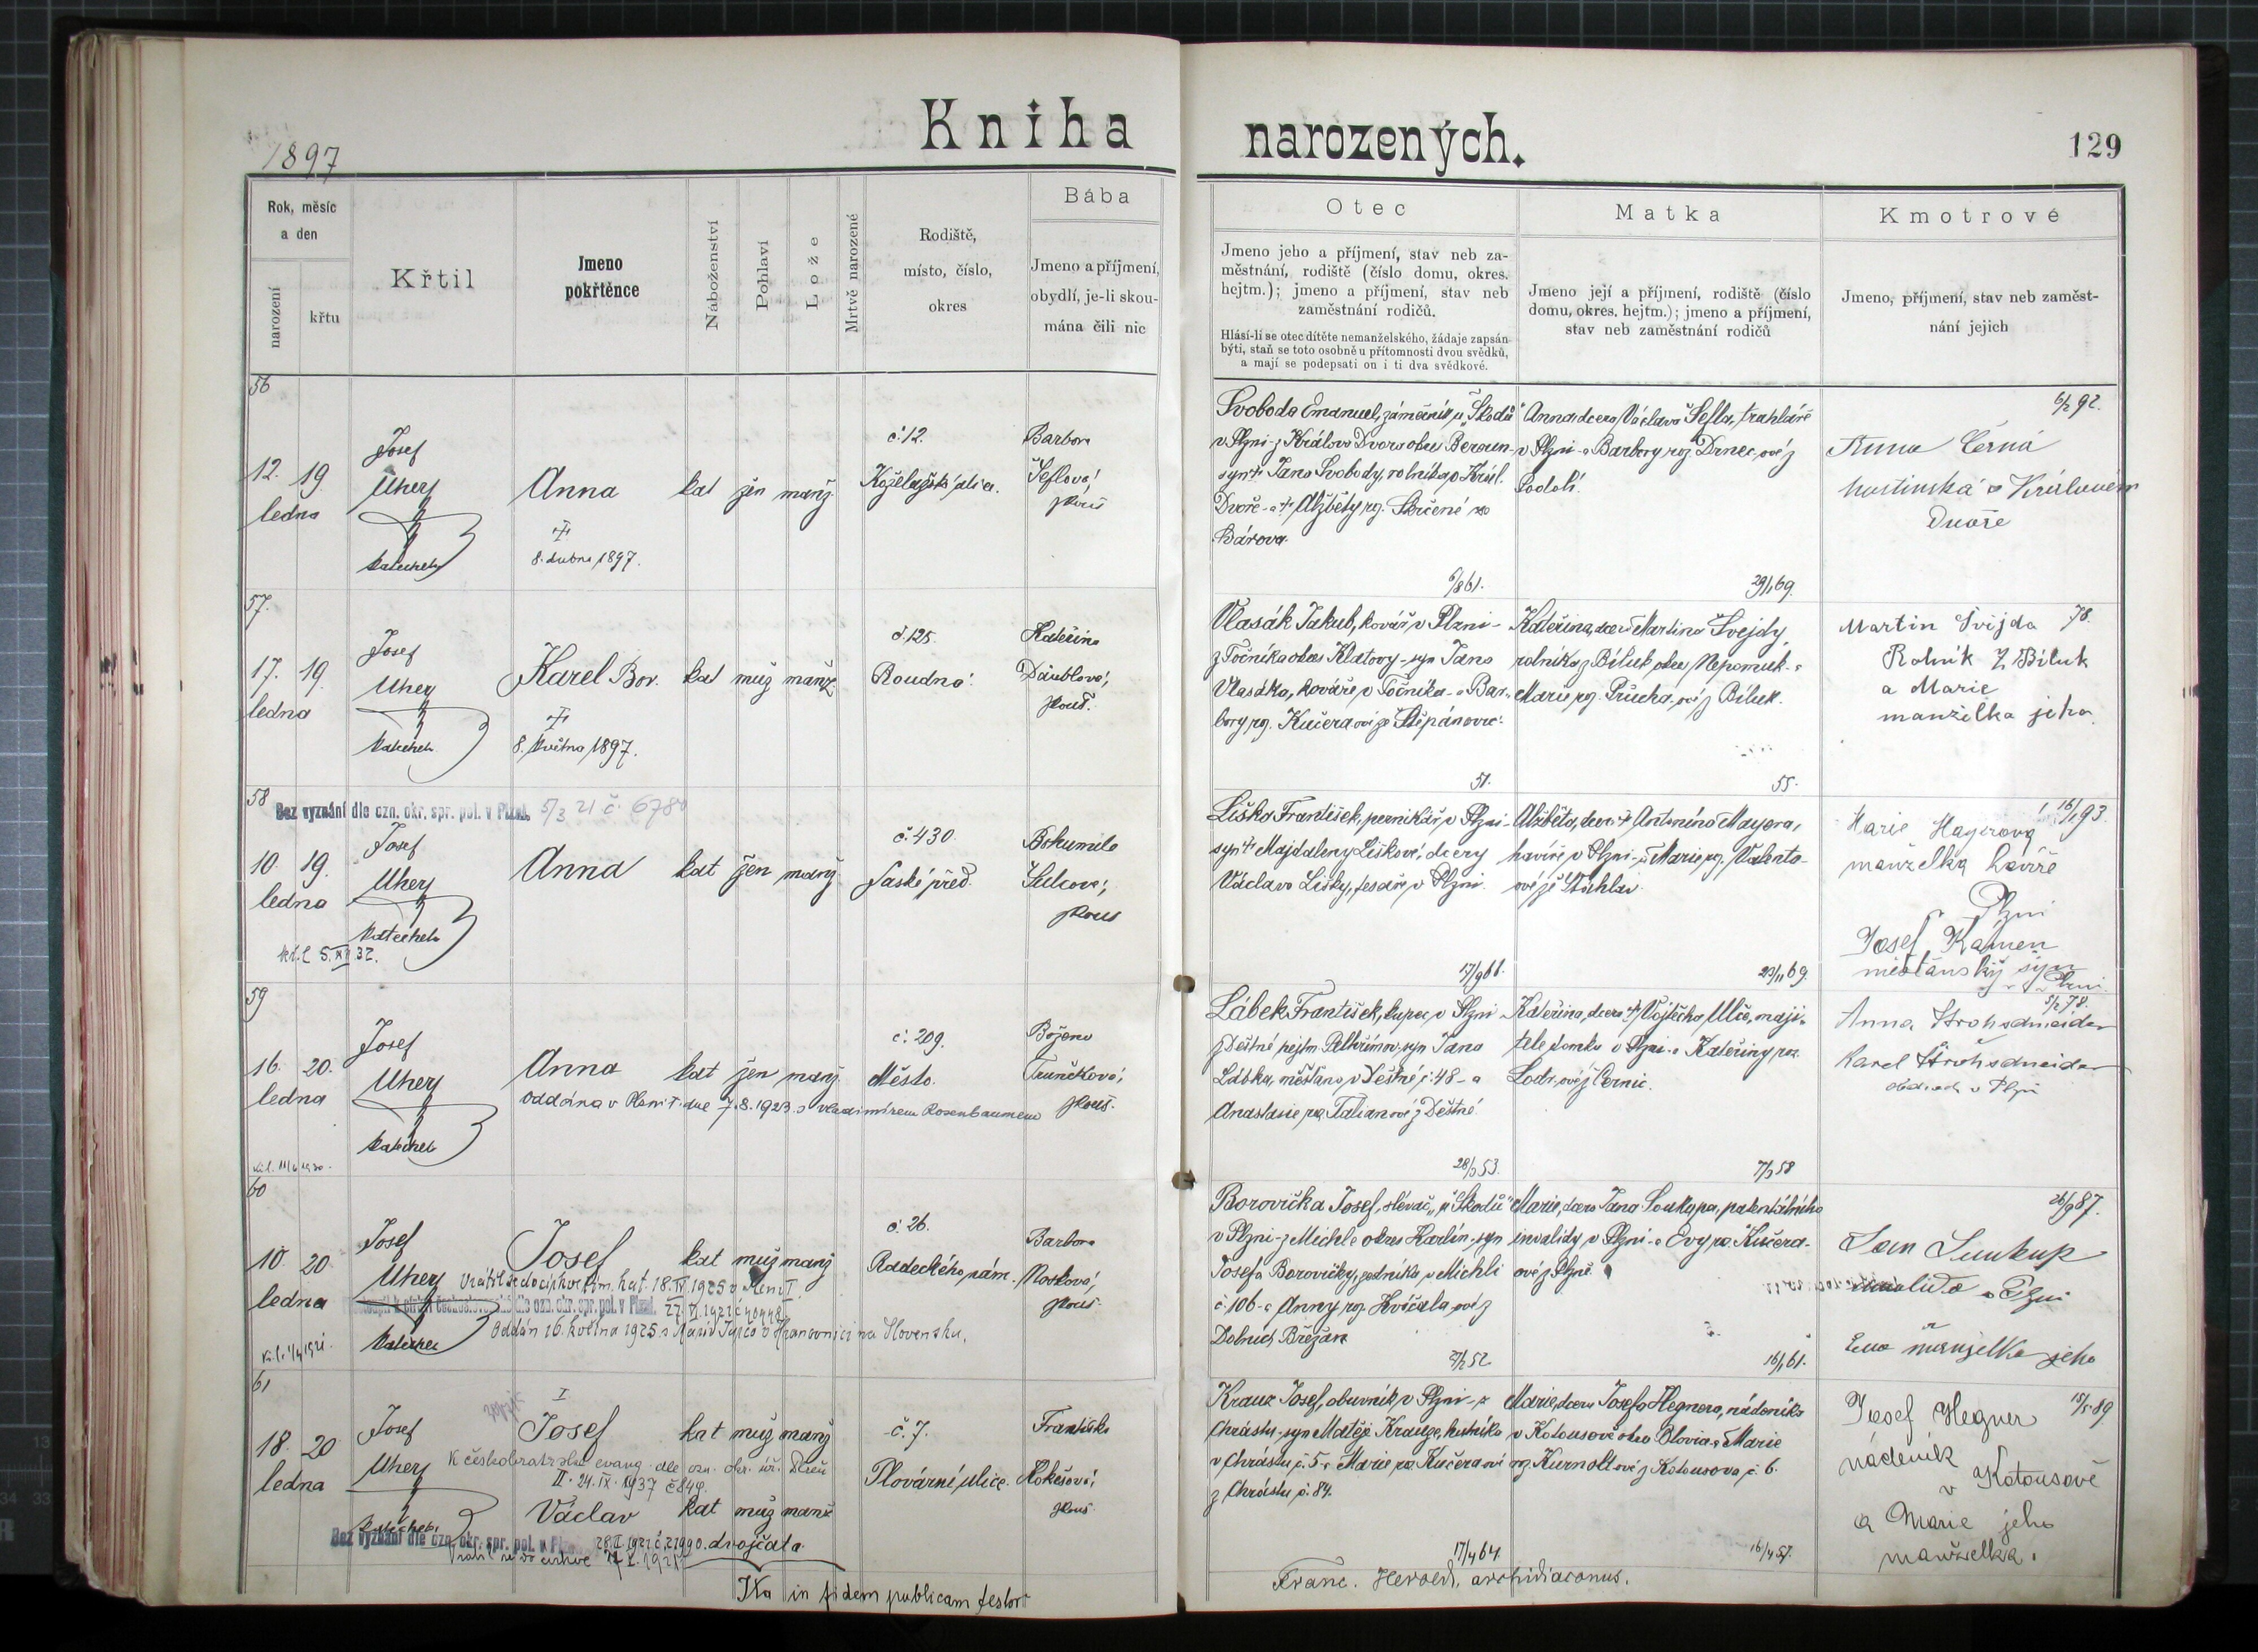 1897
Kniha
narozených.
129
Rok, měsíc
a den
narození
křtu
Křtil
Jmeno
pokřtěnce
Náboženství
Pohlaví
Lože
Mrtvě narozené
Rodiště,
místo, číslo,
okres
Bába
Jmeno a příjmení,
obydlí, je-li skou-
mána čili nic
Otec
Jmeno jeho a příjmení, stav neb za-
městnání, rodiště (číslo domu, okres.
hejtm.); jmeno a příjmení, stav neb
zaměstnání rodičů.
Hlásí-li se otec dítěte nemanželského, žádaje zapsán
býti, staň se toto osobně u přítomnosti dvou svědků,
a mají se podepsati on i ti dva svědkové.
Matka
Jmeno její a příjmení, rodiště (číslo
domu, okres. hejtm.); jmeno a příjmení,
stav neb zaměstnání rodičů
Kmotrové
Jmeno, příjmení, stav neb zaměst-
nání jejich
56
12. 19.
ledna
Josef
Uhery
katecheta
Anna
8. dubna 1897.
kat žen manž.
č. 12.
Barbora
Šeflová,
zkouš.
Svoboda Emanuel, zámečník u „Škodů"
v Plzni - z Králova Dvora okr. Beroun-
syn † Jana Svobody, rolníka v Král.
Dvoře - a † Alžběty roz.
Anna dcera Václava Šefla, truhláře
v Plzni - a Barbory roz. Drnec ové z
Podolí.
6/2 92.
Anna Černá
hostinská v Králověm
Dvoře
6/8 61.
29/1 69.
57.
17. 19.
ledna
Josef
Uhery
katecheta
Karel Bor.
8. května 1897.
kat muž manž.
č. 125.
Roudná.
Kateřina
Daublová,
zkouš.
Vlasák Jakub, kovář v Plzni -
z Točníka okres Klatovy - syn Jana
Vlasáka, kováře v Točníku - a Bar-
bory roz. Kučera ové ze Štěpánovic.
Kateřina, dcera Martina Švejdy
rolníka z Bíluk okres Nepomuk - a
Marie roz. Průcha ové z Bíluk.
78.
Martin Švijda
Rolník z Biluk
a Marie
manželka jeho.
51.
55.
58
Bez vyznání dle ozn. okr. spr. pol. v Plzni. 5/3 21 č. 6780
10. 19.
ledna
Josef
Uhery
katecheta
Anna
kat žen manž.
č. 430.
Saské před.
Bohumila
Šulcová,
zkouš
Liška František, perníkář v Plzni -
syn † Majdaleny Liškové, dcery
Václava Lišky, tesaře v Plzni.
Alžběta, dcera † Antonína Mayera,
havíře v Plzni - a Marie roz. Valenta-
ové ze Štáhlav.
16/1 93.
Marie Mayerova
manželka havíře
Plzni
Josef Kamen
měšťanský syn
Plzni.
17/9 61.
23/11 69.
59
16. 20.
ledna
Josef
Uhery
katecheta
Anna
kat žen manž.
oddána v Plzni I. dne 7.8.1923 s Vladimírem Rosenbaumem
č. 209.
Město.
Božena
Trunečková,
zkouš.
Lábek František, kupec v Plzni
z Deštné hejtm. Pelhřimov, syn Jana
Lábka, měšťana v Deštné č. 48 - a
Anastasie roz. Talian ové z Deštné.
Kateřina, dcera † Vojtěcha Ulče, maji-
tele domku v Plzni - a Kateřiny roz.
5/2 78.
Anna Strohschneider
Karel Strohschneider
obchod. v Plzni
28/3 53.
7/3 58
60
10. 20.
ledna
Josef
Uhery
katecheta
Josef
kat muž manž
Vrátil se do církve řím. kat. 18.IV.1925 v Plzni I
Oddán 16. května 1925 s Marií
na Slovensku.
č. 26.
Radeckého nám.
Barbora
Nosková,
zkouš.
Borovička Josef, slévač „u Škodů"
v Plzni - z Michle okres Karlín - syn
Josefa Borovičky, zedníka v Michli
č. 106 - a Anny roz. Kvíčala ové z
Dolních Břežan
Marie, dcera Jana Soukupa, patentálního
invalidy v Plzni - a Evy roz. Kučera-
ové z Plzně.
26/9 87.
Jan Suukup
invalida v Plzni
Eva manželka jeho
2/2 52.
16/1 61.
61
18. 20
ledna
Josef
Uhery
katecheta
I
Josef
kat muž manž
K českobratrské evang. dle ozn. okr. úř. Plzeň
II. 24.IX.1937 č. 849.
Václav
kat muž manž
Bez vyznání dle ozn. okr. spr. pol. v Plzni
dvojčata.
č. 7.
Plovární ulice.
Františka
Rokešová,
zkouš.
Krauz Josef, obuvník v Plzni - z
Chrástu, syn Matěje Krauze, hutníka
v Chrástu č. 5 - a Marie roz. Kučera ové
z Chrástu č. 84.
Marie, dcera Josefa Hegnera, nádeníka
v Kotousově okr. Blovice a Marie
15/5 89
Josef Hegner
nádeník
v Kotousově
a Marie jeho
manželka.
17/4 64.
16/4 57.
Ita in fidem publicam testor
Franc. Herold, archidiaconus.